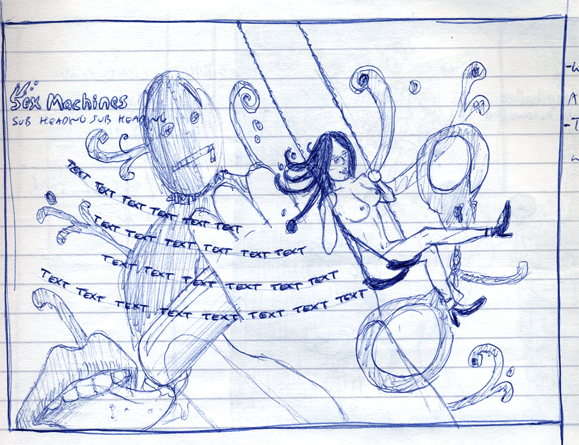 Sex Machines
SUB HEADING SUB HEADING
TEXT TEXT TEXT TEXT TEXT TEXT
TEXT TEXT TEXT TEXT TEXT TEXT
TEXT TEXT TEXT TEXT TEXT TEXT
TEXT TEXT TEXT TEXT TEXT TEXT TEXT TEXT